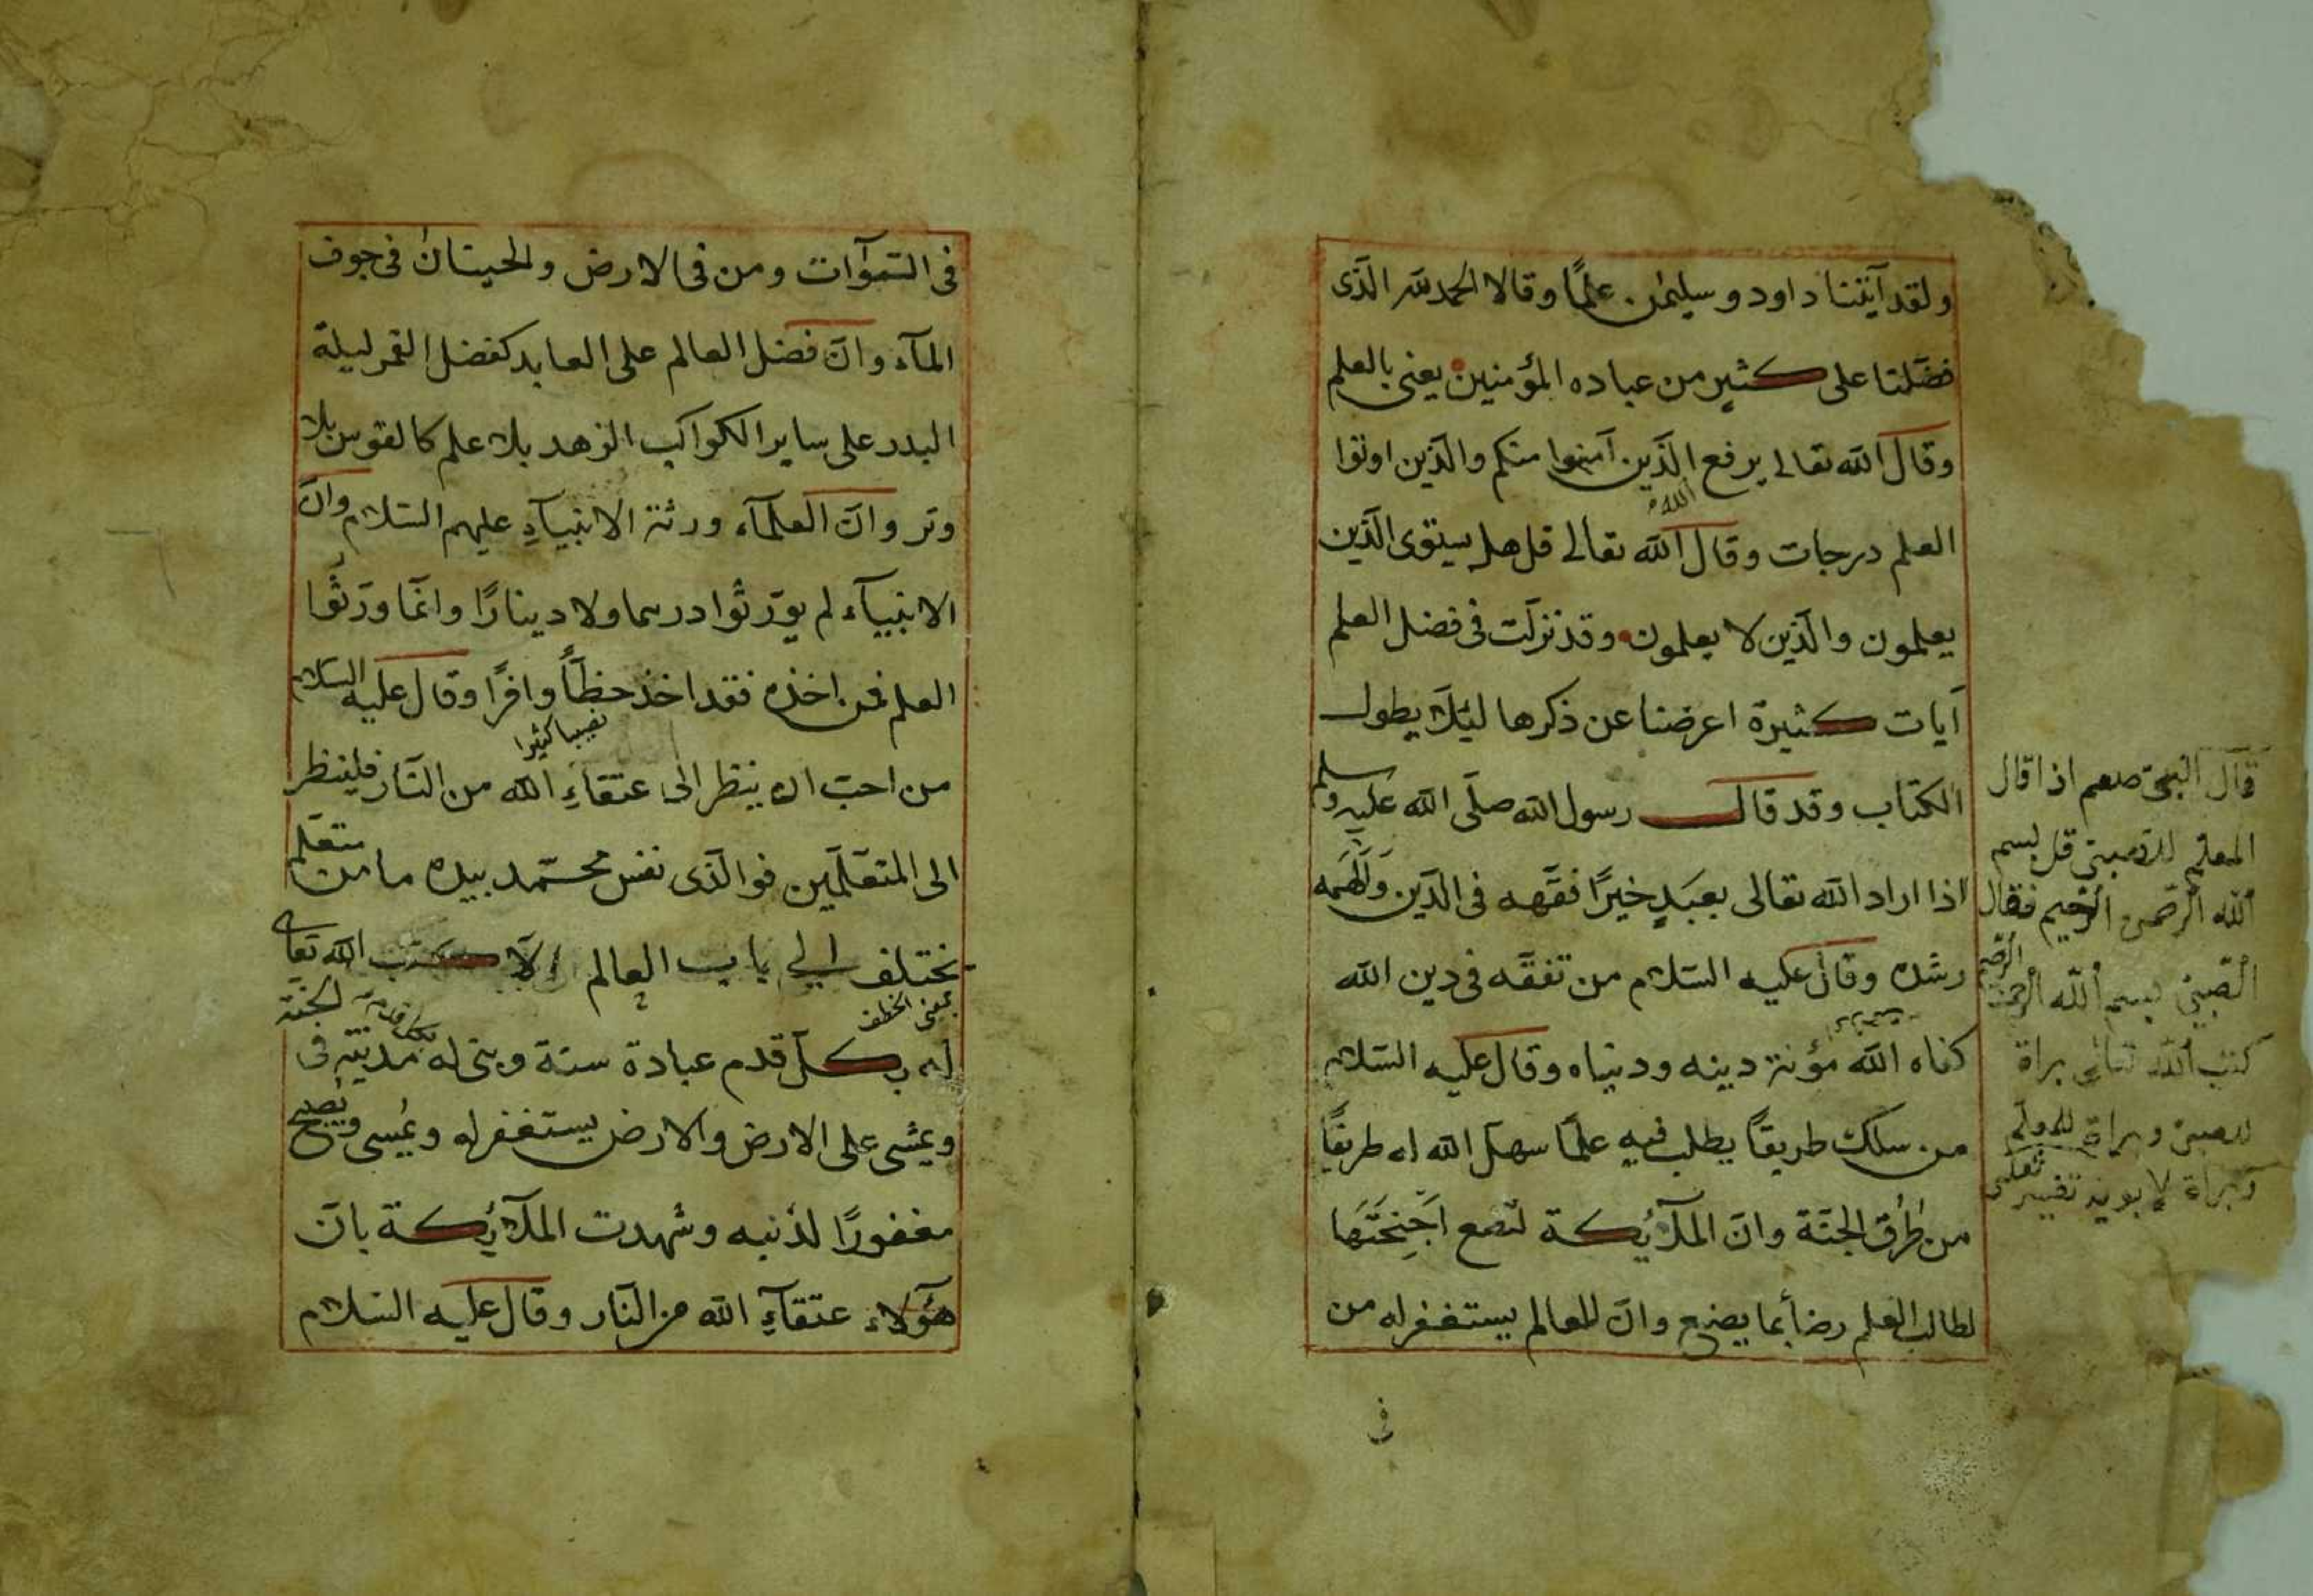 ولقد آتينا داود وسليمن علمًا وقالا الحمد لله الّذى
فضّلنا على كثير من عباده المؤمنين يعنى بالعلم
وقال الله تعالى يرفع الّذين آمنوا منكم والّذين اوتوا
الله
العلم درجات وقال الله تعالى قل هل يستوى الّذين
يعلمون والّذين لا يعلمون وقد نزلت فى فضل العلم
آيات كثيرة اعرضنا عن ذكرها ليئلا يطول
الكتاب وقد قال رسول الله صلّى الله عليه وسلم
اذا اراد الله تعالى بعبدٍ خيرًا فقّهه فى الدّين وَاَلْهَمَه
رشده وقال عليه السّلام من تفقّه فى دين الله
كفاه الله مؤنة دينه ودنياه وقال عليه السّلام
من سلك طريقًا يطلب فيه علمًا سهّل الله له طريقًا
من طُرُق الجنّة وانّ الملآئكة لتضع اَجْنِحَتَهَا
لطالب العلم رضاً بما يصنع وانّ للعالم يستغفر له من
فى
قال النبىّ صلعم اذا قال
المعلم للصبىّ قل بسم
الله الرّحمن الرّحيم فقال
الصّبىّ بسم الله الرحمن الرّحيم
كتب الله تعالى براة
للصبىّ وبراة للمعلّم
وبراة لابويه
فى السّموآت ومن فى الارض والحيتان فى جوف
المآء وانّ فضل العالم على العابد كفضل القمر ليلة
البدر على ساير الكواكب الزهد بلا علم كالقوس بلا
وتر وانّ العلمآء ورثة الانبيآءِ عليهم السّلام وانّ
الانبيآء لم يورّثوا درهما ولا دينارًا وانّما ورّثوا
العلم فمن اخذه فقد اخذ حظّاً وافرًا وقال عليه السلام
نصيبا كثيرا
من احبّ ان ينظر الى عتقاءِ الله من النّار فلينظر
الى المتعلّمين فوالّذى نفس محمّد بيده ما من متعلّم
يختلف الى باب العالم الّا كتب الله تعالى
له بكلّ قدم عبادة سنة وبنى له بكل قدم مدينة فى الجنّة
ويمشى على الارض والارض يستغفر له ويُمسى ويصبح
مغفورًا لذنبه وشهدت الملآئكة بانّ
هؤلاء عتقآءِ الله من النّار وقال عليه السّلام